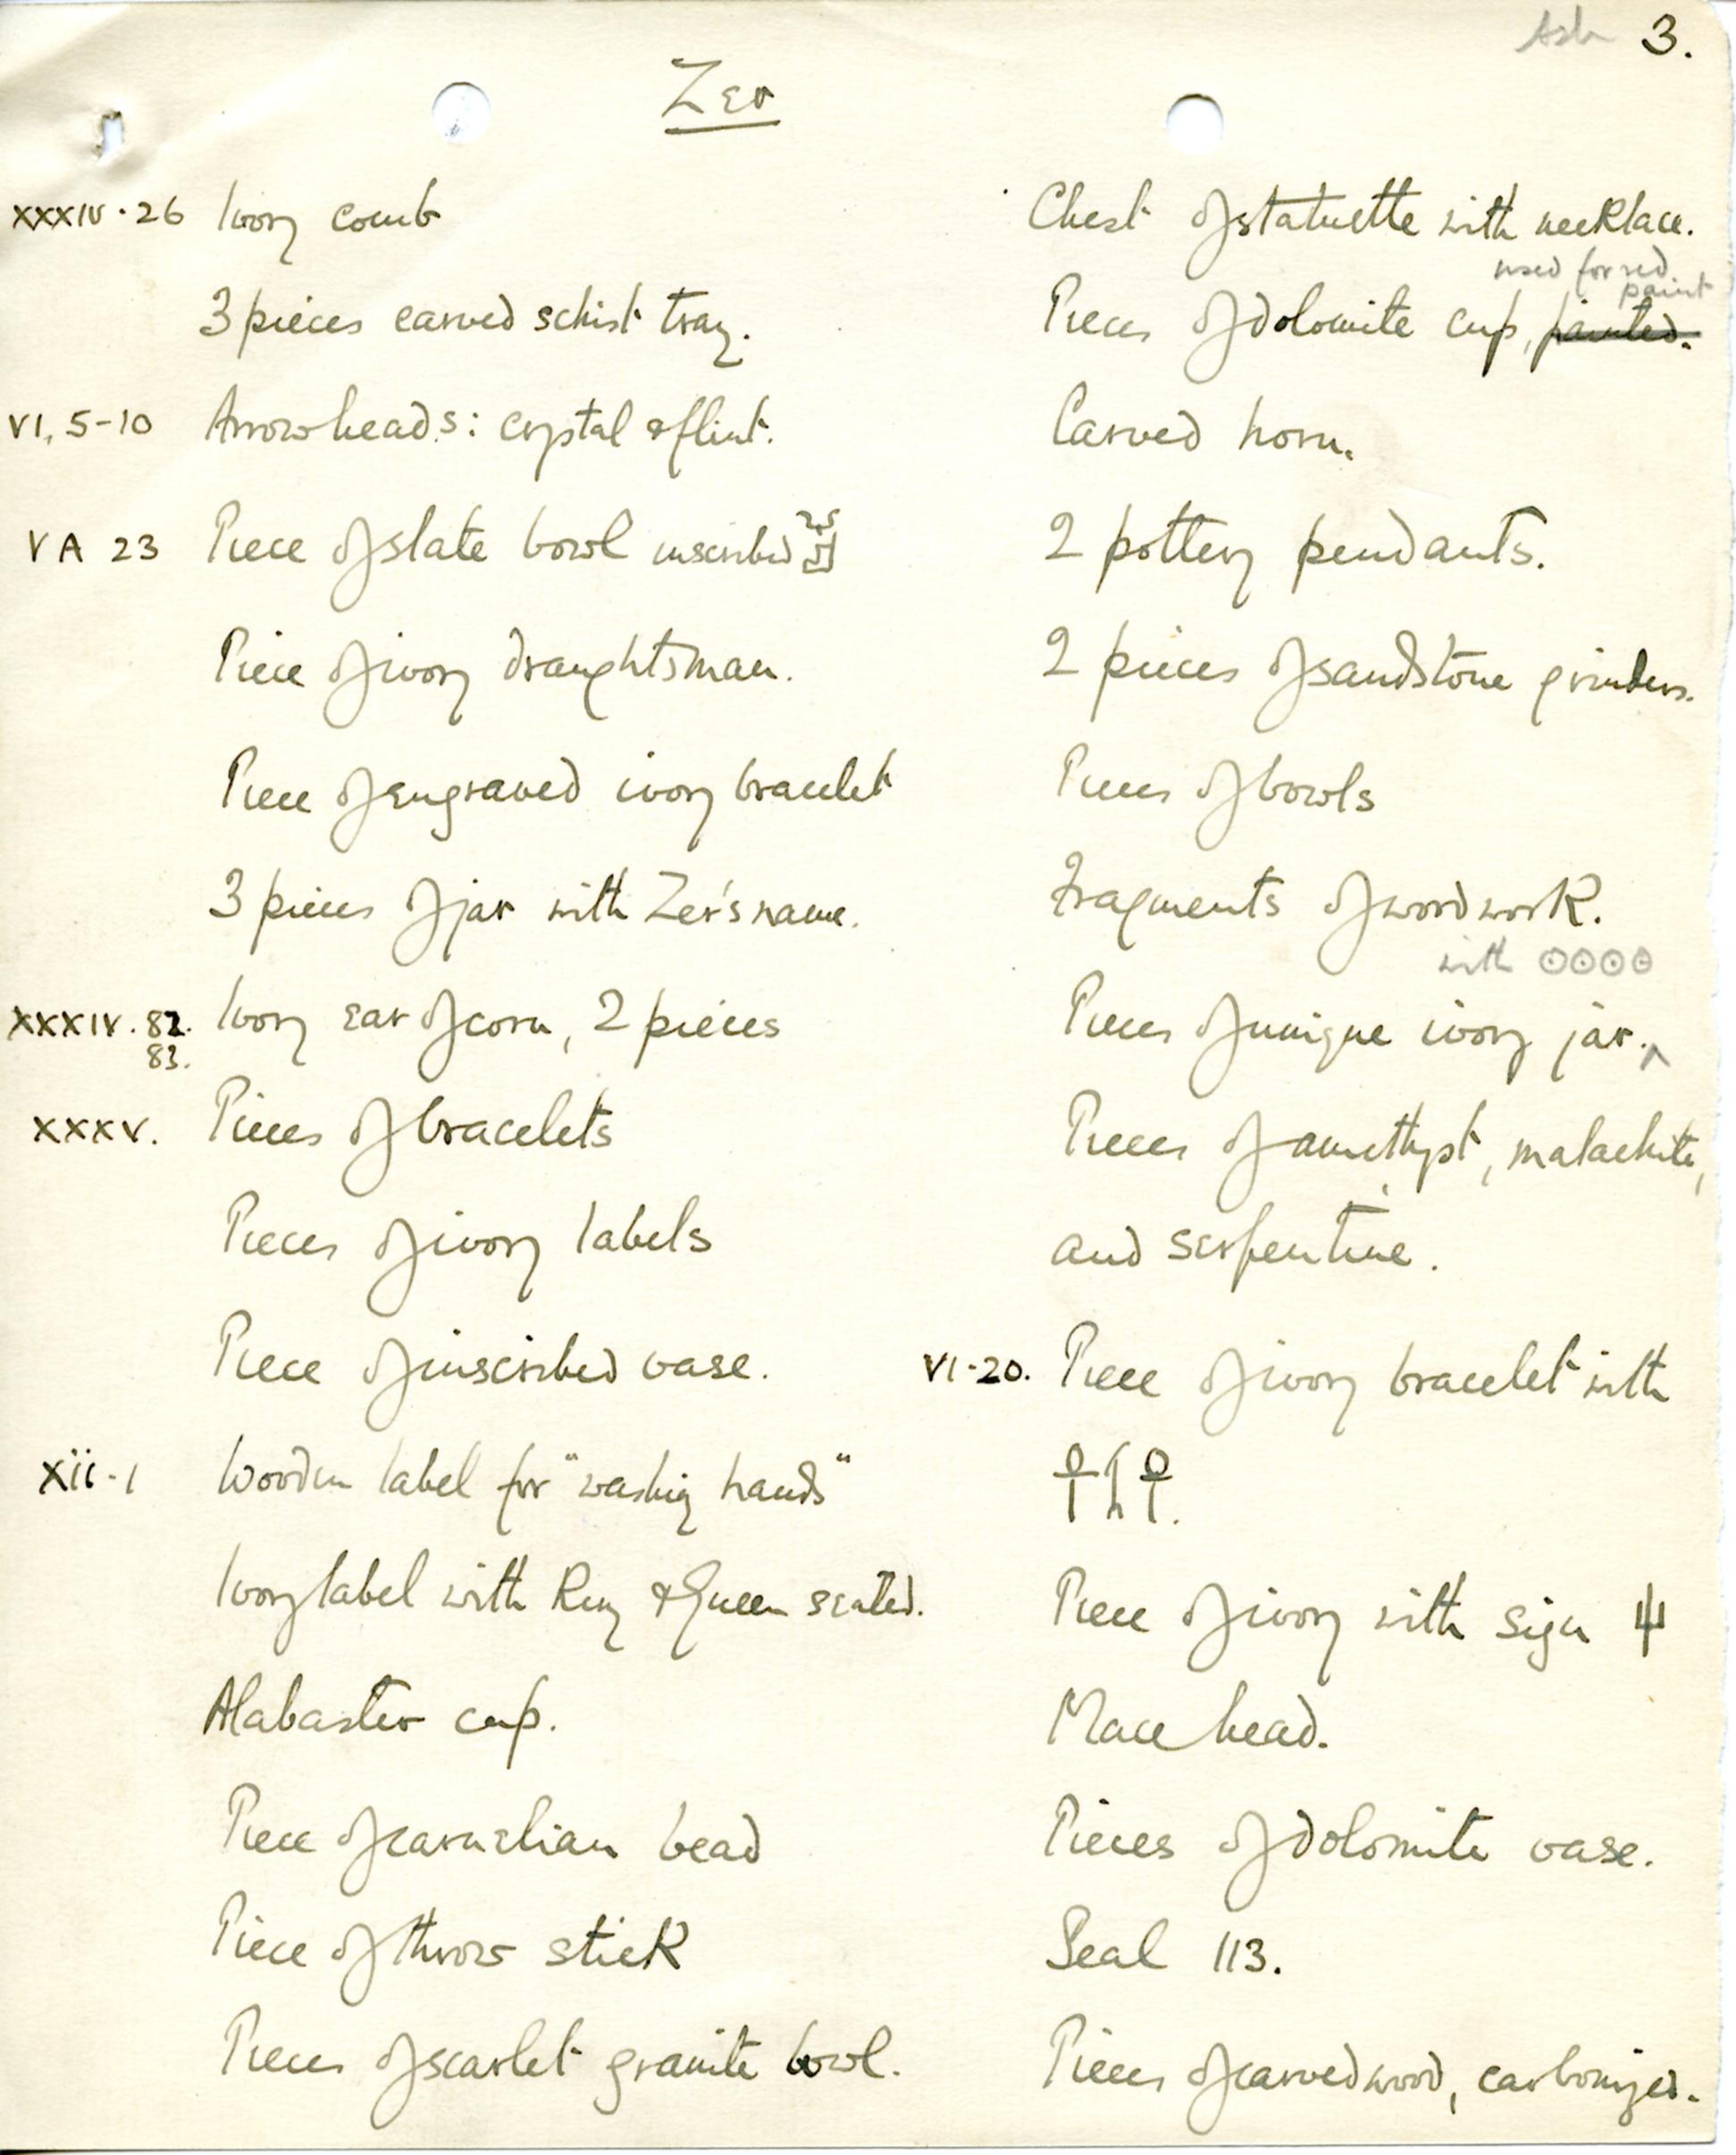 Ash 3.
Zer
XXXIV . 26 Ivory comb
3 pieces carved schist tray.
VI, 5-10 Arrowheads: crystal & flint.
VA 23 Piece of slate bowl inscribed
Piece of ivory draughtsman.
Piece of engraved ivory bracelet
3 pieces of jar with Zer's name.
XXXIV. 82. Ivory ear of corn, 2 pieces
83.
XXXV. Pieces of bracelets
Pieces of ivory labels
Piece of inscribed vase.
XII-1 Wooden label for "washing hands"
Ivory label with King & Queen seated.
Alabaster cup.
Piece of carnelian bead
Piece of throw stick
Pieces of scarlet granite bowl.
Chest of statuette with necklace.
used for red
paint
Pieces of dolomite cup, painted.
Carved horn.
2 pottery pendants.
2 pieces of sandstone grinders.
Pieces of bowls
Fragments of woodwork.
with ⊙⊙⊙⊙
Pieces of unique ivory jar.
Pieces of amethyst, malachite,
and serpentine.
VI-20. Piece of ivory bracelet with
Piece of ivory with sign
Mace head.
Pieces of dolomite vase.
Seal 113.
Pieces of carved wood, carbonized.